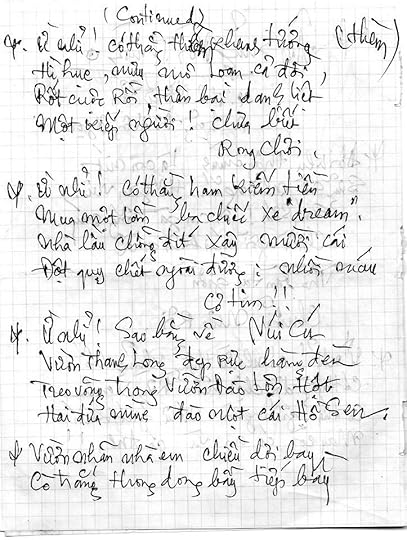 (Continued)
Ừ nhỉ! có thằng thiếu phang tướng (thêm)
Hì hục, mưu mô loạn cả đời,
Rốt cuộc rồi, thân bại danh liệt
Một kiếp người! chưa biết
Rong chơi.
Ừ nhỉ! có thằng ham kiếm tiền
Mua một lần ba chiếc xe "dream".
Nhà lầu chồng đất xây mười cái
Đột quỵ chết ngoài đường: nhồi máu
Cơ tim!!
Ừ nhỉ! Sao bằng về Núi Cú
Vườn Thanh Long đẹp rực hàng đèn
Treo võng trong Vườn Đào Lộn Hột
Hai đứa mình đào một cái Hồ Sen.
Vườn nhãn nhà em chiều dơi bay
Có trăng thong dong bẫy tiếp bẫy